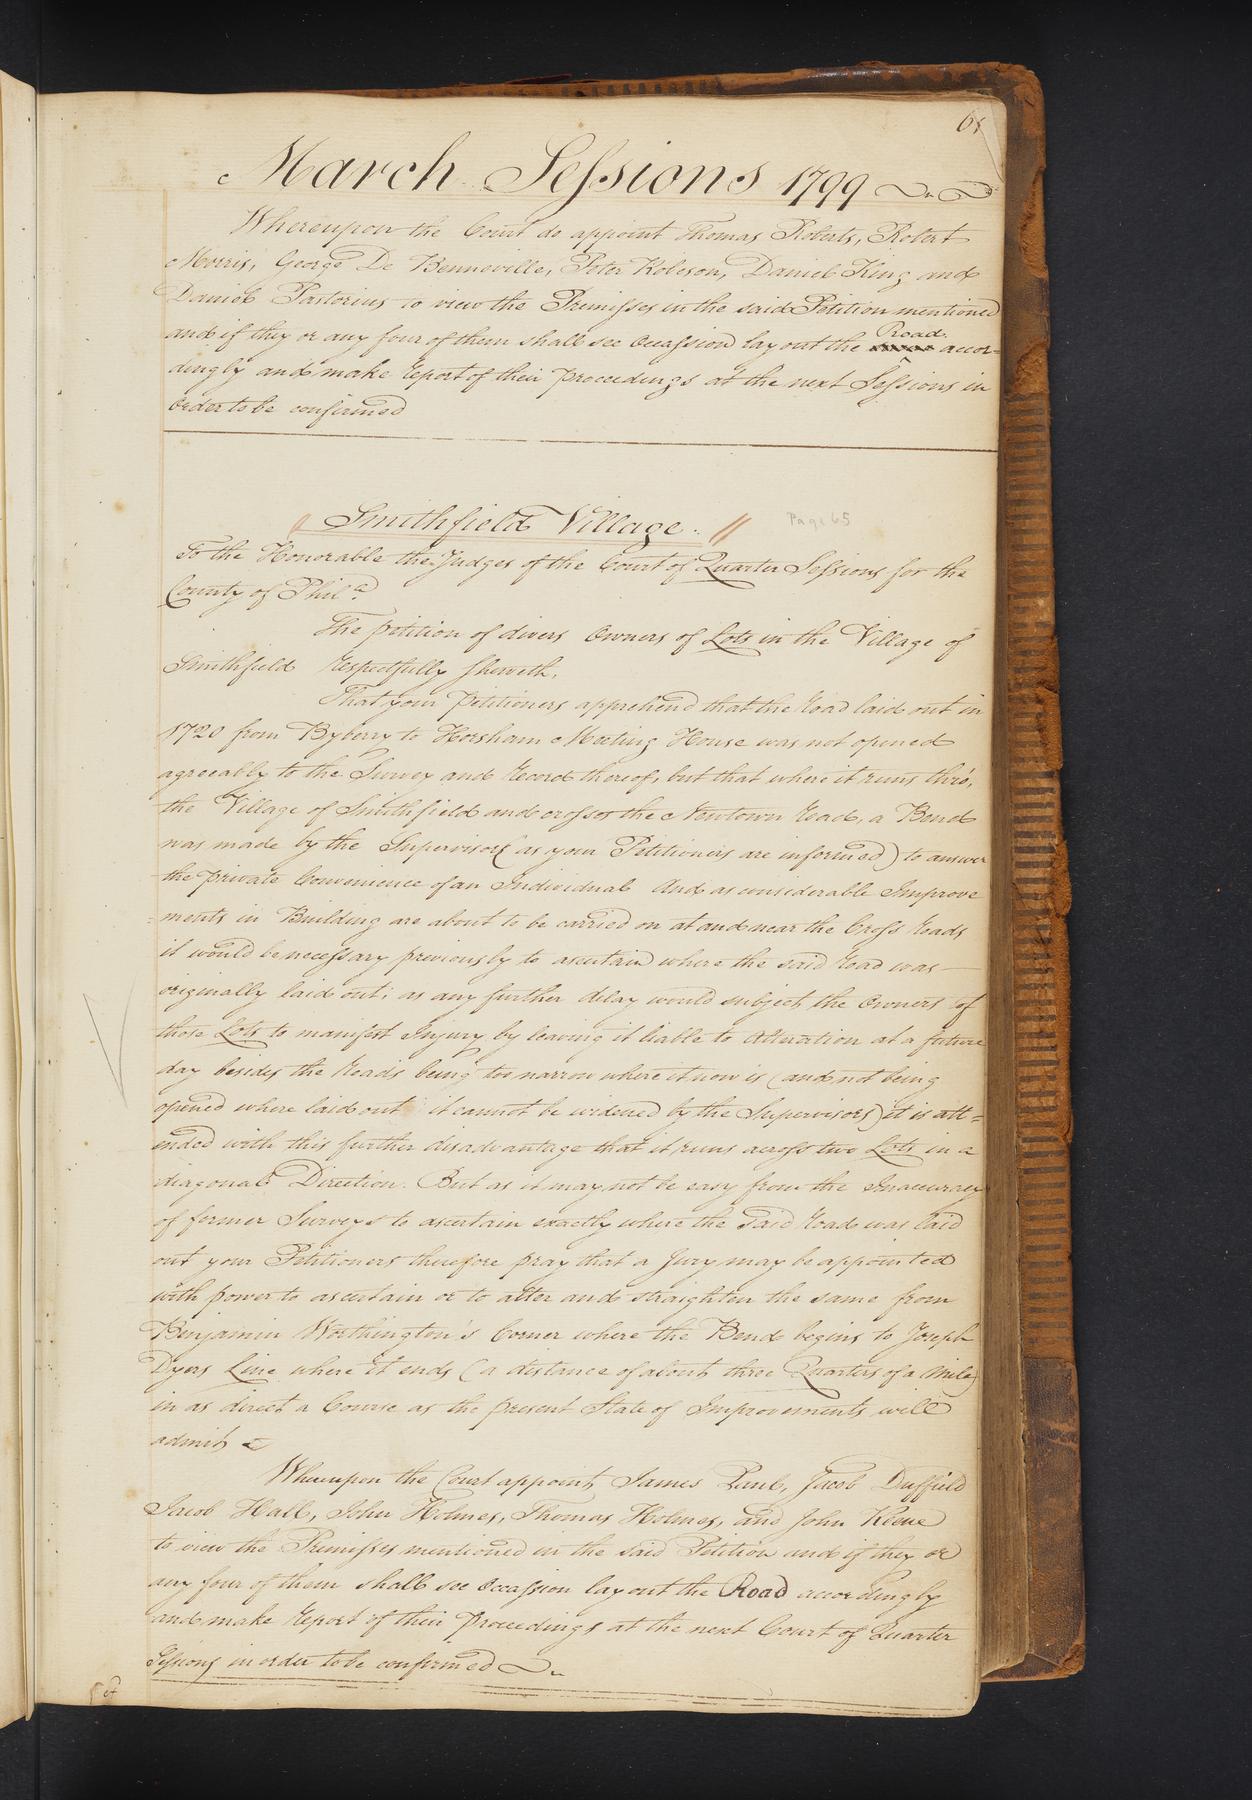 March Sessions 1799
Whereupon the Court do appoint Thomas Roberts, Robert
Morris, George De Benneville, Peter Robeson, Daniel King and
Daniel Pastorius to view the Premisses in the said Petition mentioned
and if they or any four of them shall see Occassion lay out the Road accor=
dingly and make Report of their proceedings at the next Sessions in
Order to be confirmed
Smithfield Village.
Page 65
To the Honorable the Judges of the Court of Quarter Sessions for the
County of Phila.
The petition of divers Owners of Lots in the Village of
Smithfield Respectfully sheweth.
That your petitioners apprehend that the Road laid out in
1720 from Byberry to Horsham Meeting House was not opened
agreeably to the Survey and Record thereof, but that where it runs thro',
the Village of Smithfield and crosses the Newtown Road, a Bend
was made by the Supervisors (as your Petitioners are informed) to answer
the private Convenience of an Individual And as considerable Improve
=ments in Building are about to be carried on at and near the Cross Roads
it would be necessary previously to ascertain where the said Road was
originally laid out; as any further delay would subject the Owners of
those Lots to manifest Injury by leaving it liable to Alteration at a future
day besides the Roads being too narrow where it now is (and not being
opened where laid out it cannot be widened by the Supervisors) it is att=
ended with this further disadvantage that it runs across two Lots in a
diagonal Direction. But as it may not be easy from the Inaccuracy
of former Surveys to ascertain exactly where the said Road was laid
out your Petitioners therefore pray that a Jury may be appointed
with power to ascertain or to alter and straighten the same from
Benjamin Worthington's Corner where the Bend begins to Joseph
Dyers Line where it ends (a distance of about three Quarters of a Mile)
in as direct a Course as the present State of Improvements will
admit
Whereupon the Court appoint James Paul, Jacob Duffield
Jacob Hall, John Holmes, Thomas Holmes, and John Keene
to view the Premisses mentioned in the said Petition and if they or
any four of them shall see Occassion lay out the Road accordingly
and make Report of their Proceedings at the next Court of Quarter
Sessions in order to be confirmed